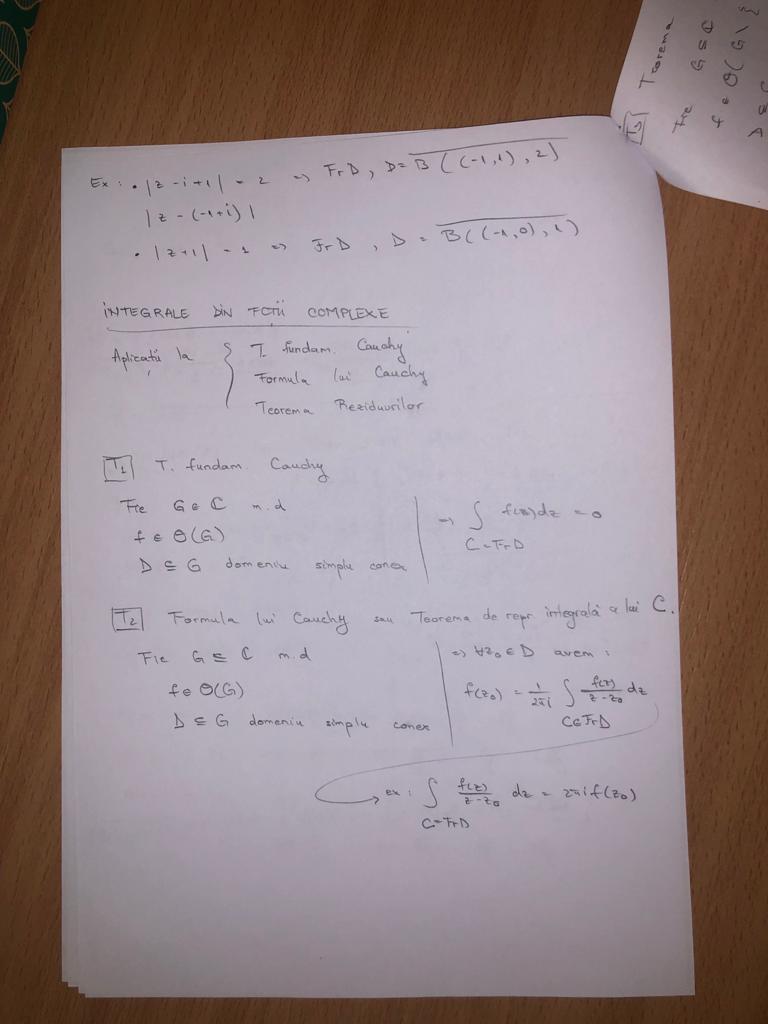 Ex: • |z-i+1| = 2 => FrD, D = \overline{B((-1,1),2)}
|z-(-1+i)|
• |z+1| = 1 => FrD, D = \overline{B((-1,0),1)}
INTEGRALE DIN FCȚII COMPLEXE
Aplicații la { T. fundam. Cauchy
Formula lui Cauchy
Teorema Reziduurilor
T1 T. fundam. Cauchy
Fie G∈ℂ m.d
f ∈ Θ(G)
D ⊆ G domeniu simplu conex
=> ∫ f(z)dz = 0
C=FrD
T2 Formula lui Cauchy sau Teorema de repr. integrală a lui C.
Fie G ⊆ ℂ m.d
f ∈ Θ(G)
D ⊆ G domeniu simplu conex
=> ∀z₀∈D avem:
f(z₀) = 1/2πi ∫ f(z)/z-z₀ dz
C∈FrD
ex: ∫ f(z)/z-z₀ dz = 2πi f(z₀)
C=FrD
T3 Teorema
Fie G ⊆ ℂ
f ∈ Θ(G\{